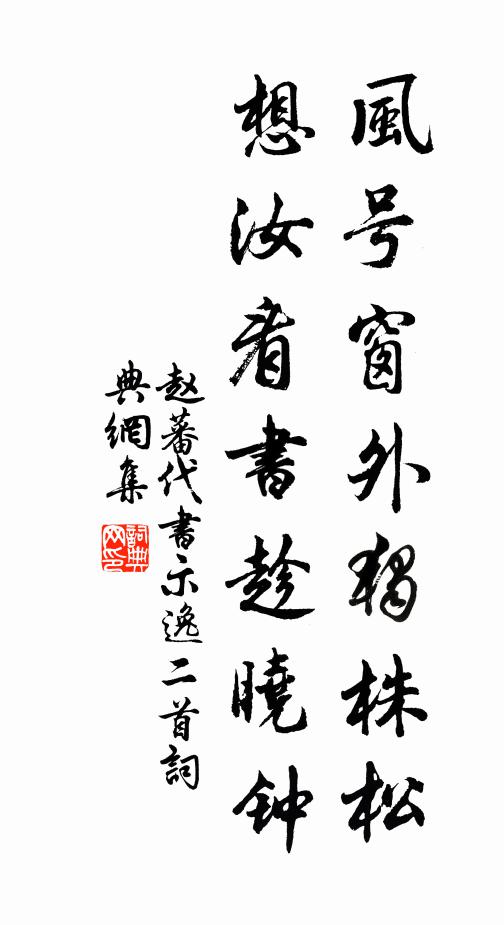 風号窗外独株松
想汝看書趁曉钟
赵蕃代書示逸二首詞
典網集
詞典
网印